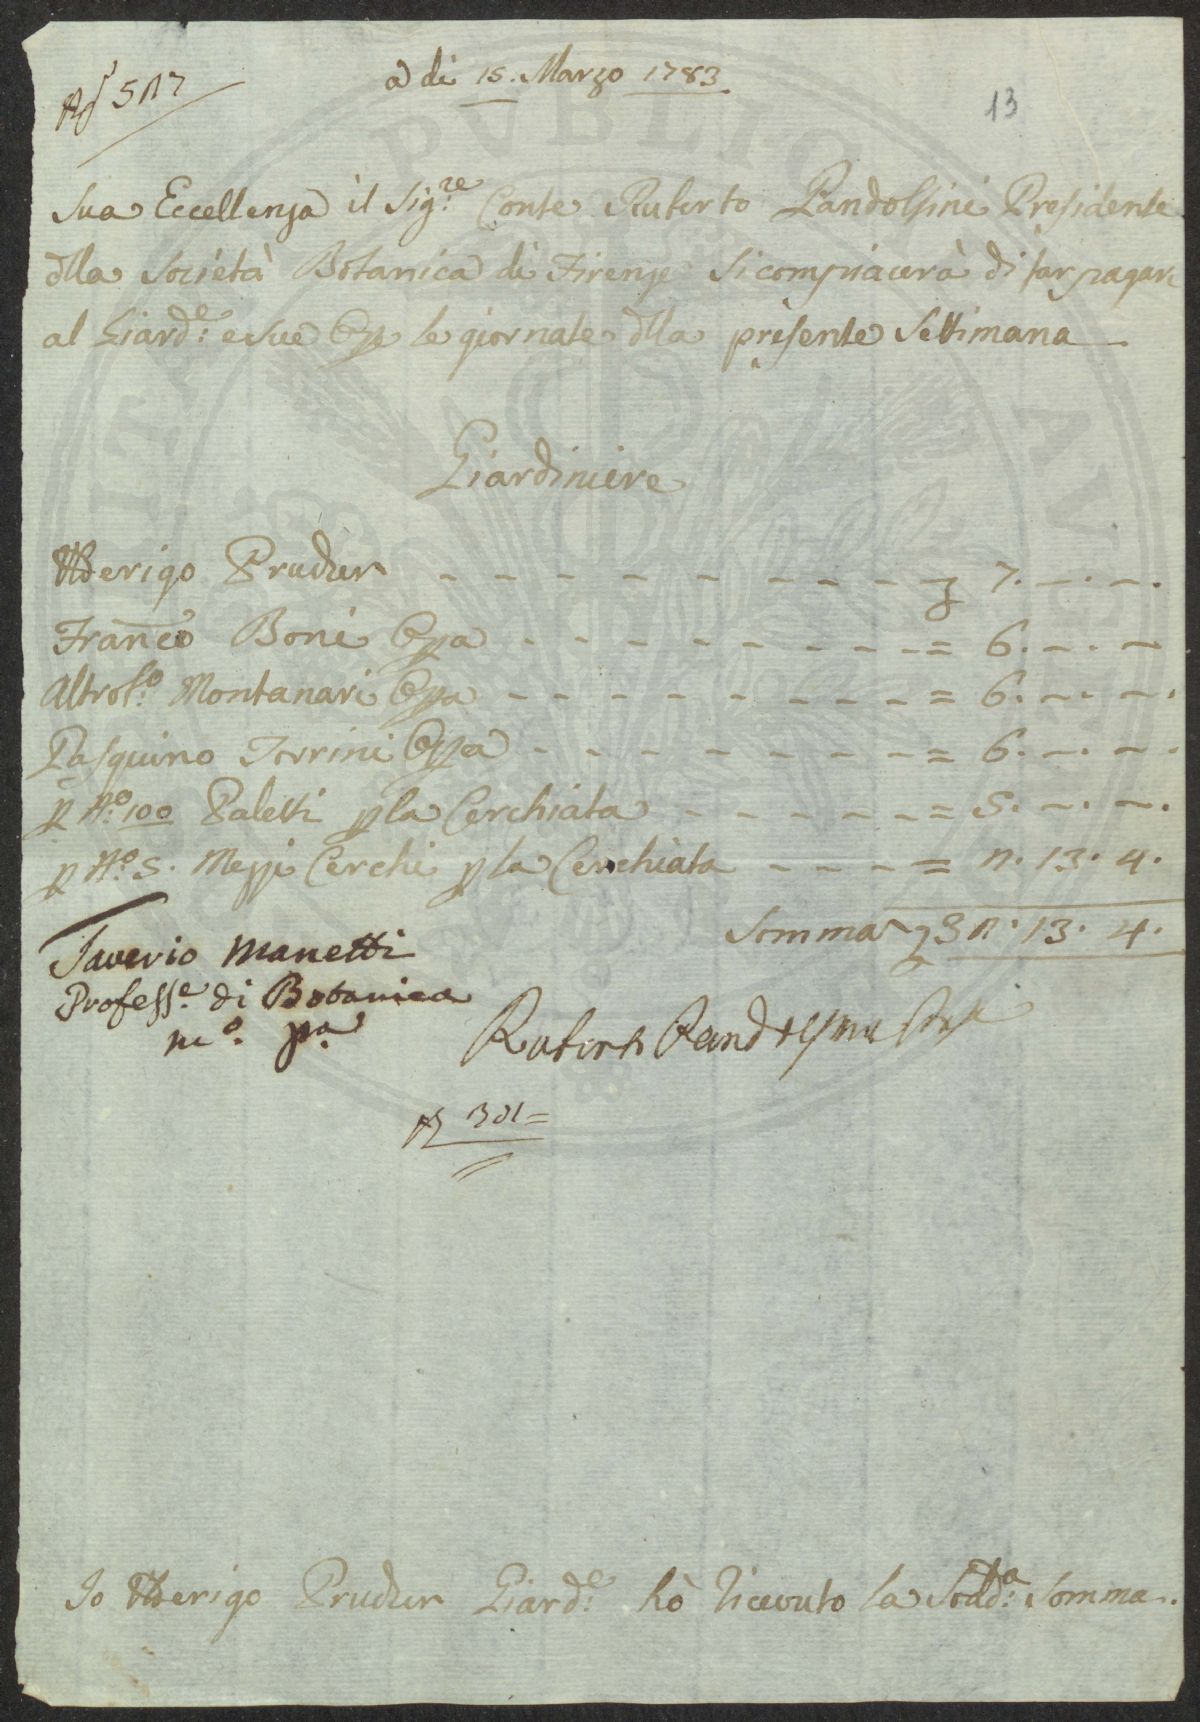 a di 15. Marzo 1783.
13
Sua Eccellenza il Sig:re Conte Ruberto Pandolfini Presidente
dlla Società Botanica di Firenze si compiacerà di far pagare
al Giard:e e sue Ope le giornate dlla presente Settimana
Giardiniere
Prucker 7. —. —.
Franco Boni Opa = 6. —. —
Altro Montanari Opa = 6. —. —.
Pasquino Torrini Opa = 6. —. —.
p N:o 100 Paletti p la Cerchiata = 5. —. —.
p N:o 5. Mezzi Cerchi p la Cerchiata = 2. 13. 4.
Somma 32. 13. 4.
Saverio Manetti
Profess:e di Botanica
m:o p:a
Ruberto Pandolfini
Io Giard:e hò ricevuto la Sodd:a Somma.